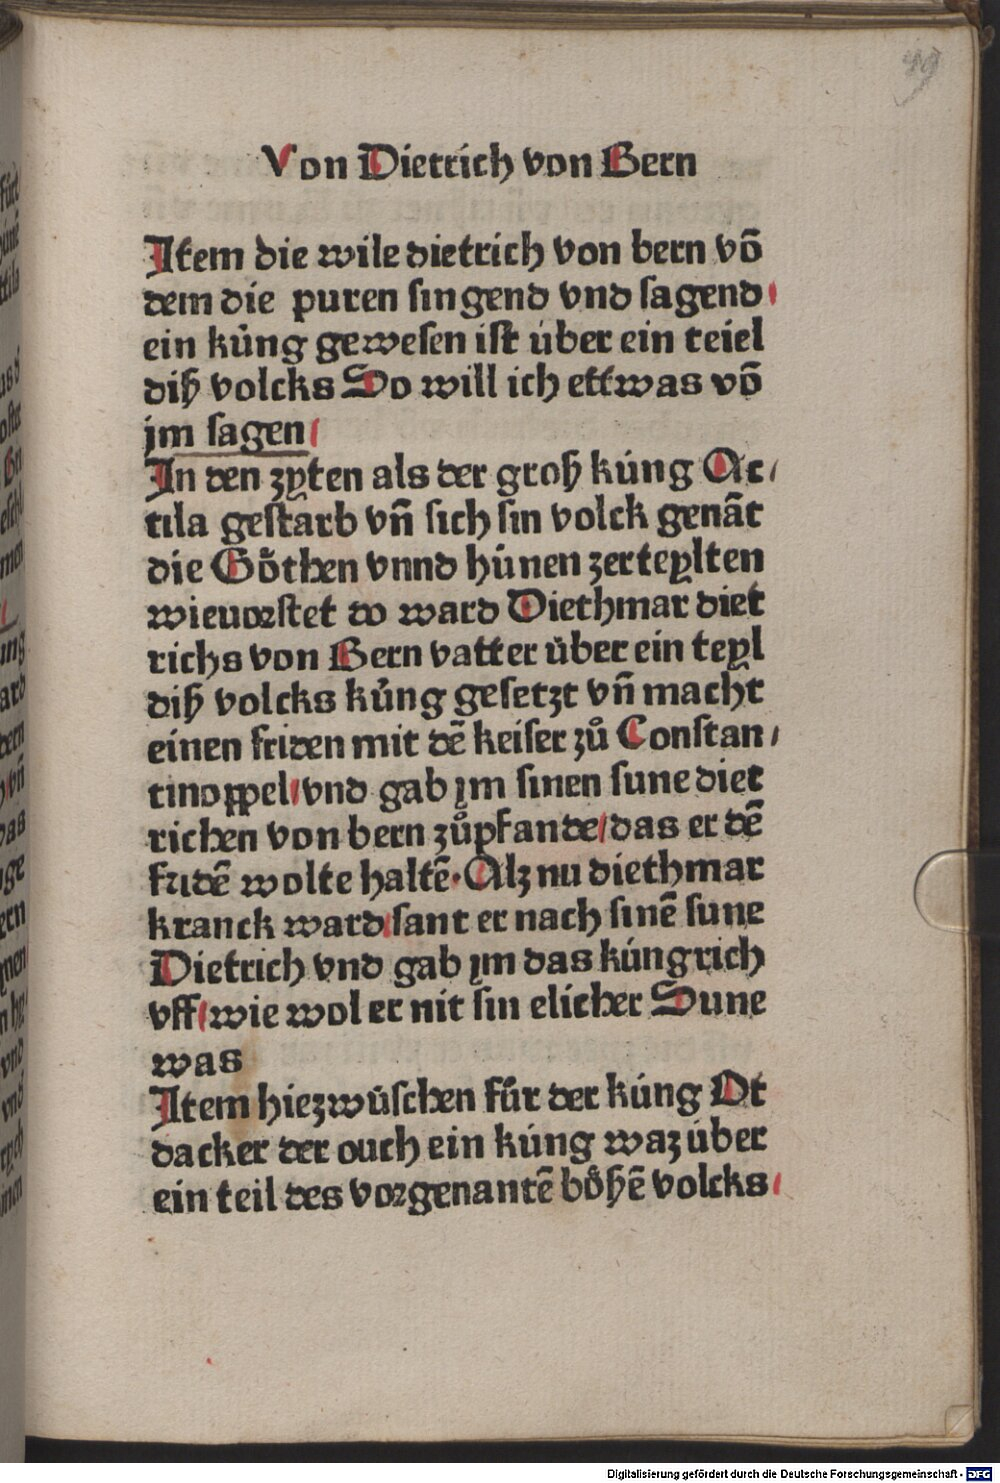 49
Von Dietrich von Bern
Item die wile dietrich von bern võ
dem die puren singend vnd sagend /
ein kúng gewesen ist úber ein teiel
diß volcks So will ich ettwas võ
jm sagen /
In den zyten als der groß kúng At/
tila gestarb vñ sich sin volck genãt
die Gͦothen vnnd húnen zerteylten
wieuorstet do ward Diethmar diet
richs von Bern vatter úber ein teyl
diß volcks kúng gesetzt vñ macht
einen friden mit dẽ keiser zů Constan/
tinoppel / vnd gab jm sinen sune diet
richen von bern zů pfande / das er dẽ
fridẽ wolte haltẽ · Alz nu diethmar
kranck ward / sant er nach sinẽ sune
Dietrich vnd gab jm das kúngrich
vff / wie wol er nit sin elicher Sune
was
Item hiezwúschen fůr der kúng Ot
dacker der ouch ein kúng waz úber
ein teil des vorgenantẽ bößẽ volcks /
Digitalisierung gefördert durch die Deutsche Forschungsgemeinschaft - DFG